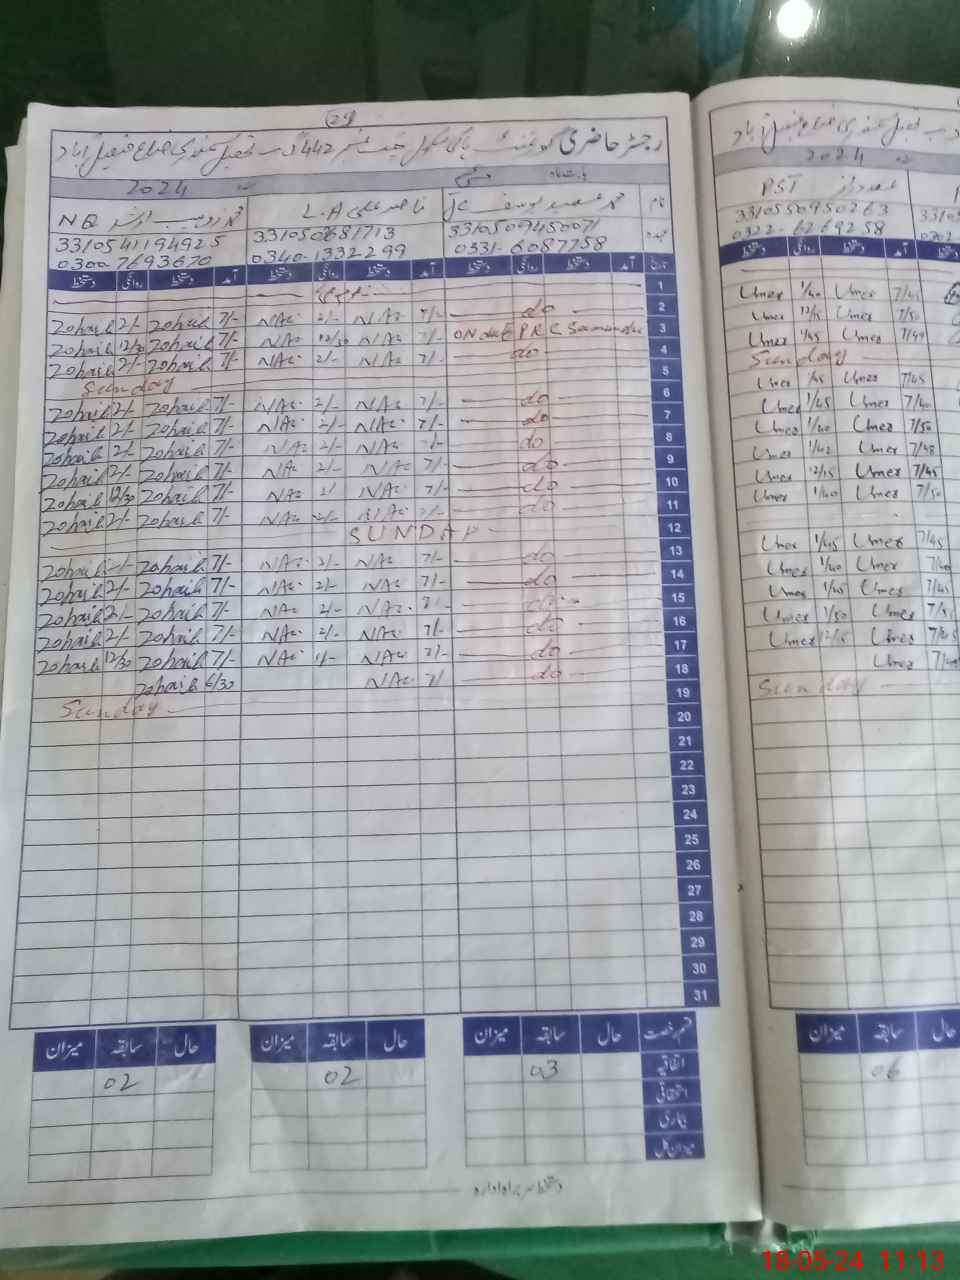 29
رجسٹر حاضری گورنمنٹ ہائی سکول چک نمبر 442 گ ب تحصیل سمندری ضلع فیصل آباد
2024
نام محمد سعید یوسف JC ناصر علی L.A NQ
عہدہ 3310509450071 331050681713 3310541194925
0331-6087758 0340-1332299 0300-7693670
تاریخ آمد دستخط روانگی دستخط آمد دستخط روانگی دستخط آمد دستخط روانگی دستخط
1
2 do Zohaib 2/- Zohaib 7/- NAc 2/- NAc 7/-
3 ON duty PRC Samundri Zohaib 12/30 Zohaib 7/- NAc 12/30 NAc 7/-
4 do Zohaib 2/- Zohaib 7/- NAc 2/- NAc 7/-
5 Sunday
6 do Zohaib 2/- Zohaib 7/- NAc 2/- NAc 7/-
7 do Zohaib 2/- Zohaib 7/- NAc 2/- NAc 7/-
8 do Zohaib 2/- Zohaib 7/- NAc 2/- NAc 7/-
9 do Zohaib 2/- Zohaib 7/- NAc 2/- NAc 7/-
10 do Zohaib 12/30 Zohaib 7/- NAc 2/ NAc 7/-
11 do Zohaib 2/- Zohaib 7/- NAc 2/- NAc
12 SUNDAY
13 do Zohaib Zohaib 7/- NAc 2/- NAc 7/-
14 do Zohaib 2/- Zohaib 7/- NAc 2/- NAc 7/-
15 do Zohaib 2/- Zohaib 7/- NAc 2/- NAc
16 do Zohaib 2/- Zohaib 7/- NAc 2/- NAc 7/-
17 do Zohaib 12/30 Zohaib 7/- NAc 1/- NAc 7/-
18 do Zohaib 6/30 NAc 7/
19 Sunday
20
21
22
23
24
25
26
27
28
29
30
31
قسم رخصت حال سابقہ میزان حال سابقہ میزان حال سابقہ میزان
اتفاقیہ 03 02 02
استحقاقی
بیماری
میزان کل
دستخط سربراہ ادارہ
2024
PST
3310550950263
0322-6269258
دستخط روانگی دستخط آمد
Umer 1/40 Umer 7/45
Umer 12/15 Umer 7/50
Umer 1/45 Umer 7/49
Sunday
Umer 1/45 Umer 7/45
Umer 1/45 Umer 7/40
Umer 1/40 Umer 7/50
Umer 1/42 Umer 7/48
Umer 12/15 Umer 7/45
Umer 1/40 Umer 7/50
Umer 1/45 Umer 7/45
Umer 1/40 Umer 7/40
Umer 1/45 Umer 7/45
Umer 1/50 Umer
Umer 12/15 Umer 7/45
Umer
Sunday
حال سابقہ میزان
06
18-05-24 11:13